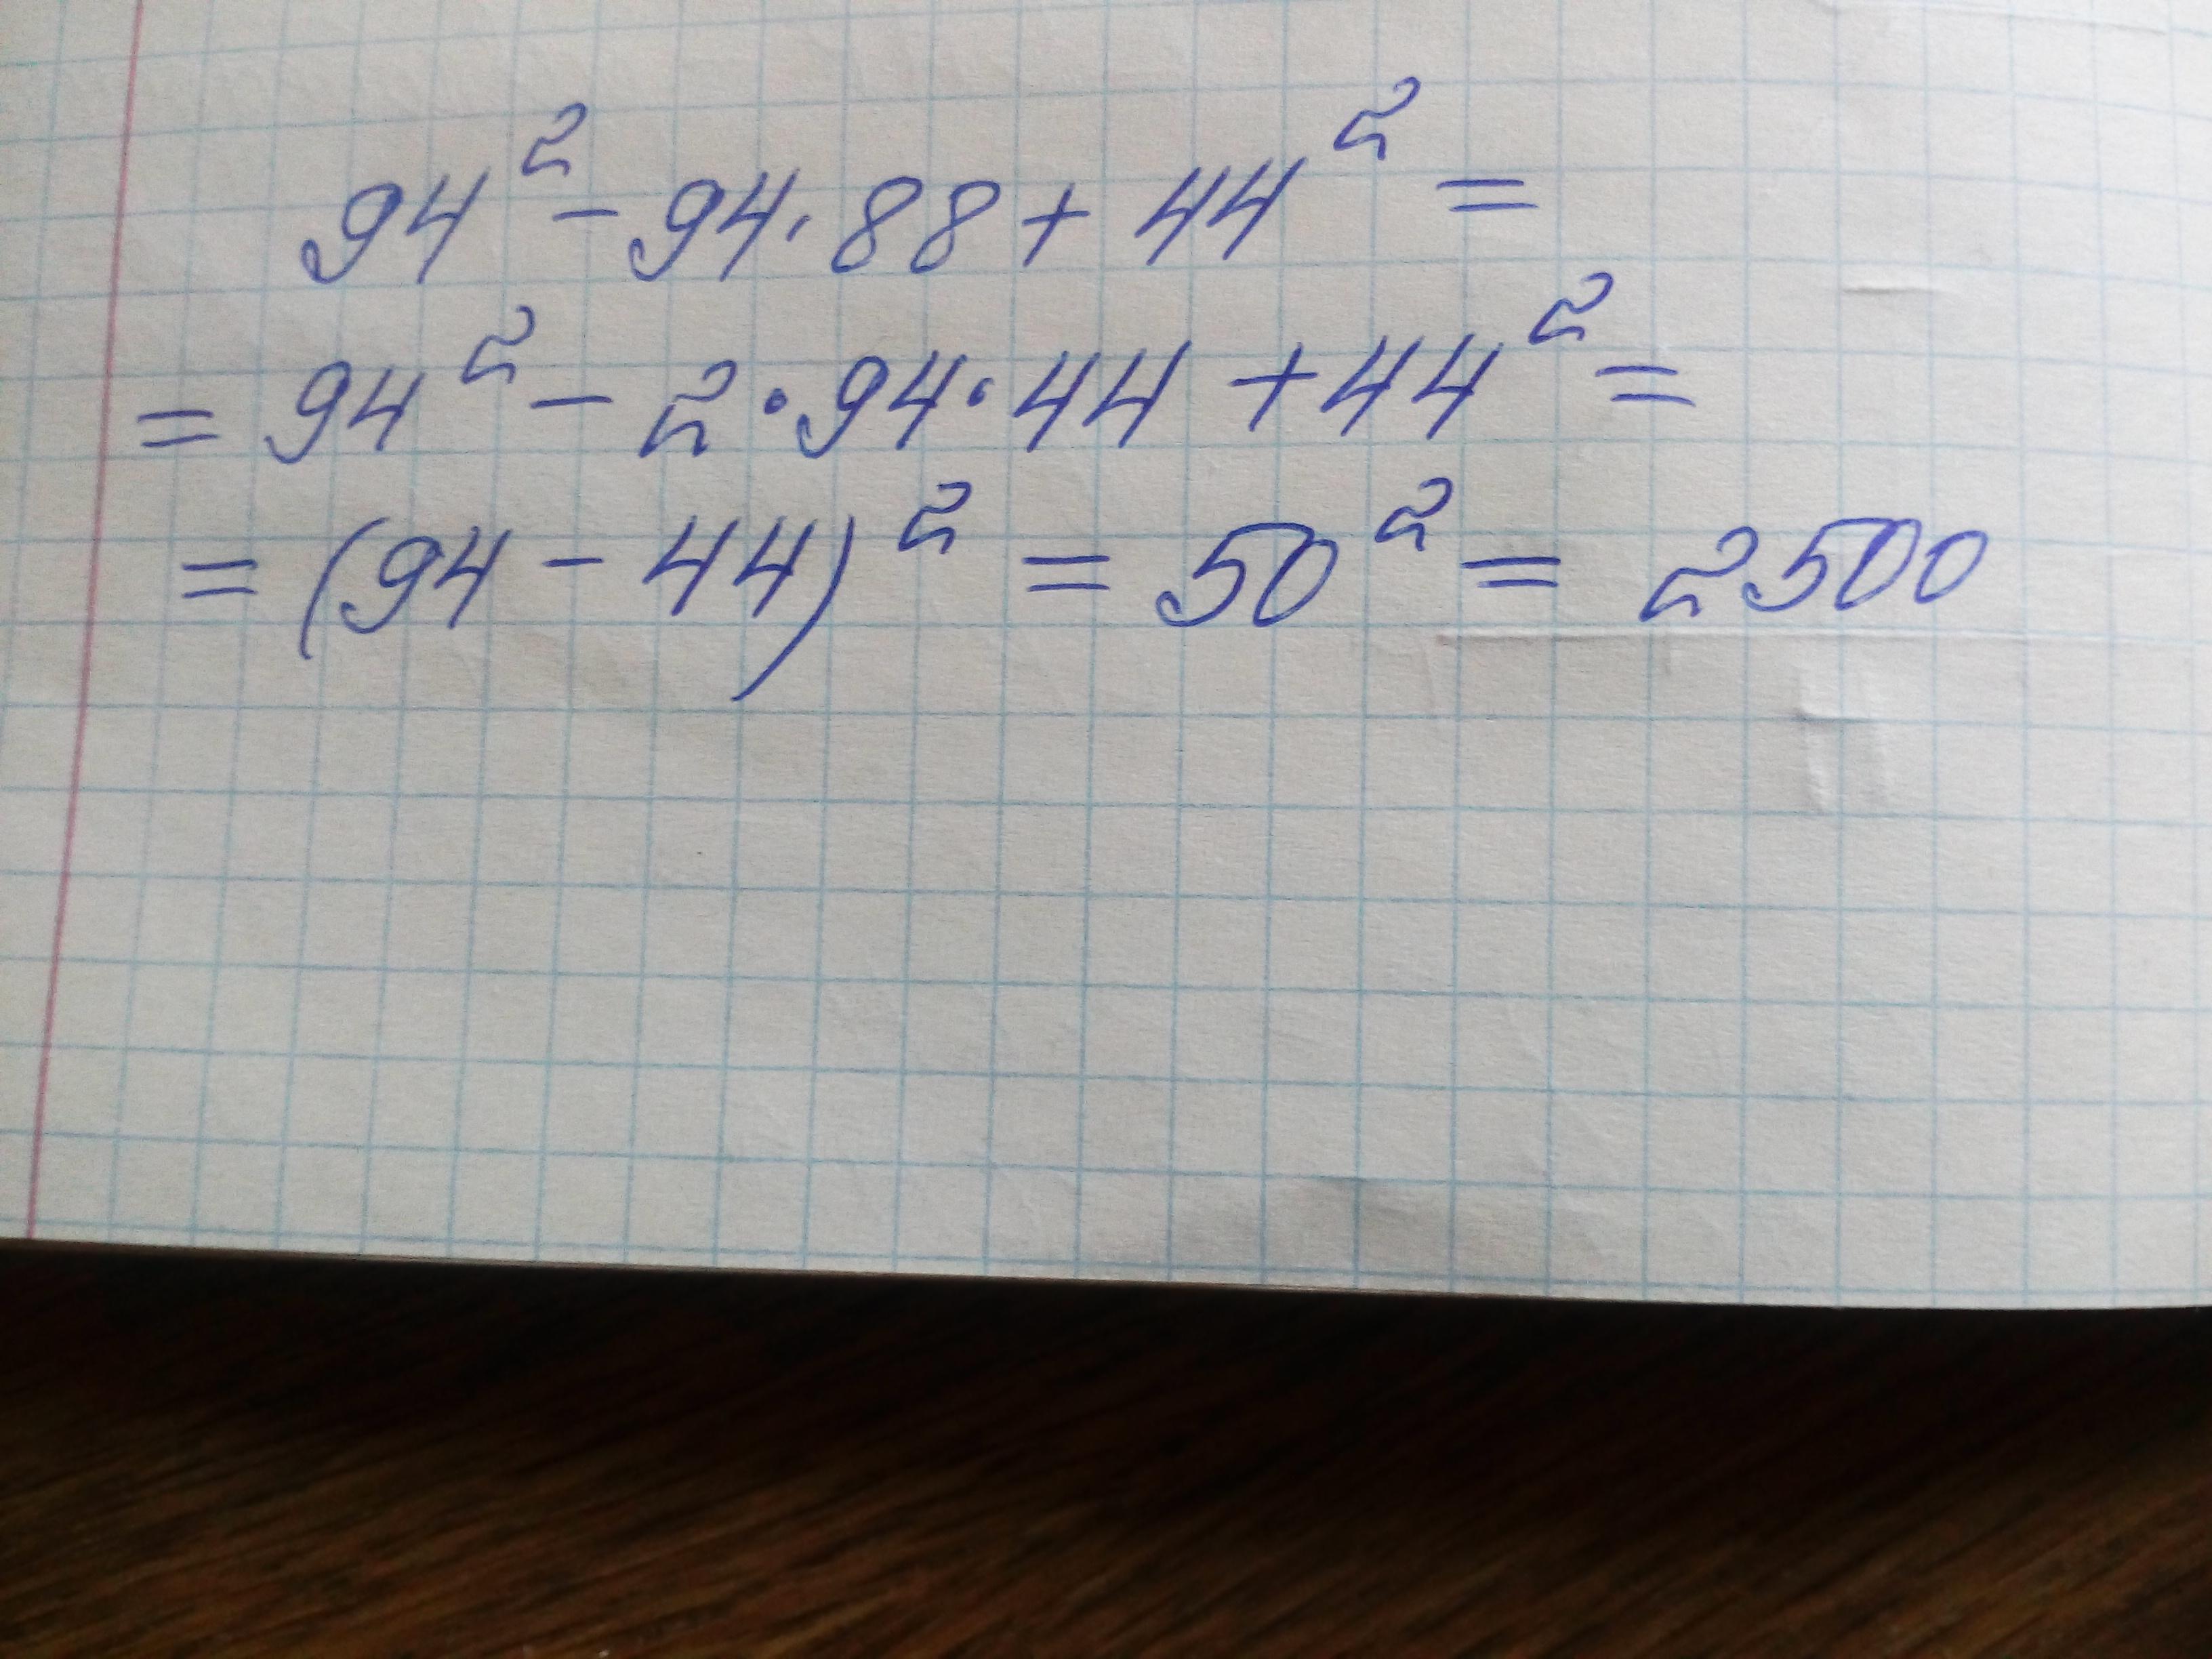 94² - 94 · 88 + 44² =
= 94² - 2 · 94 · 44 + 44² =
= (94 - 44)² = 50² = 2500